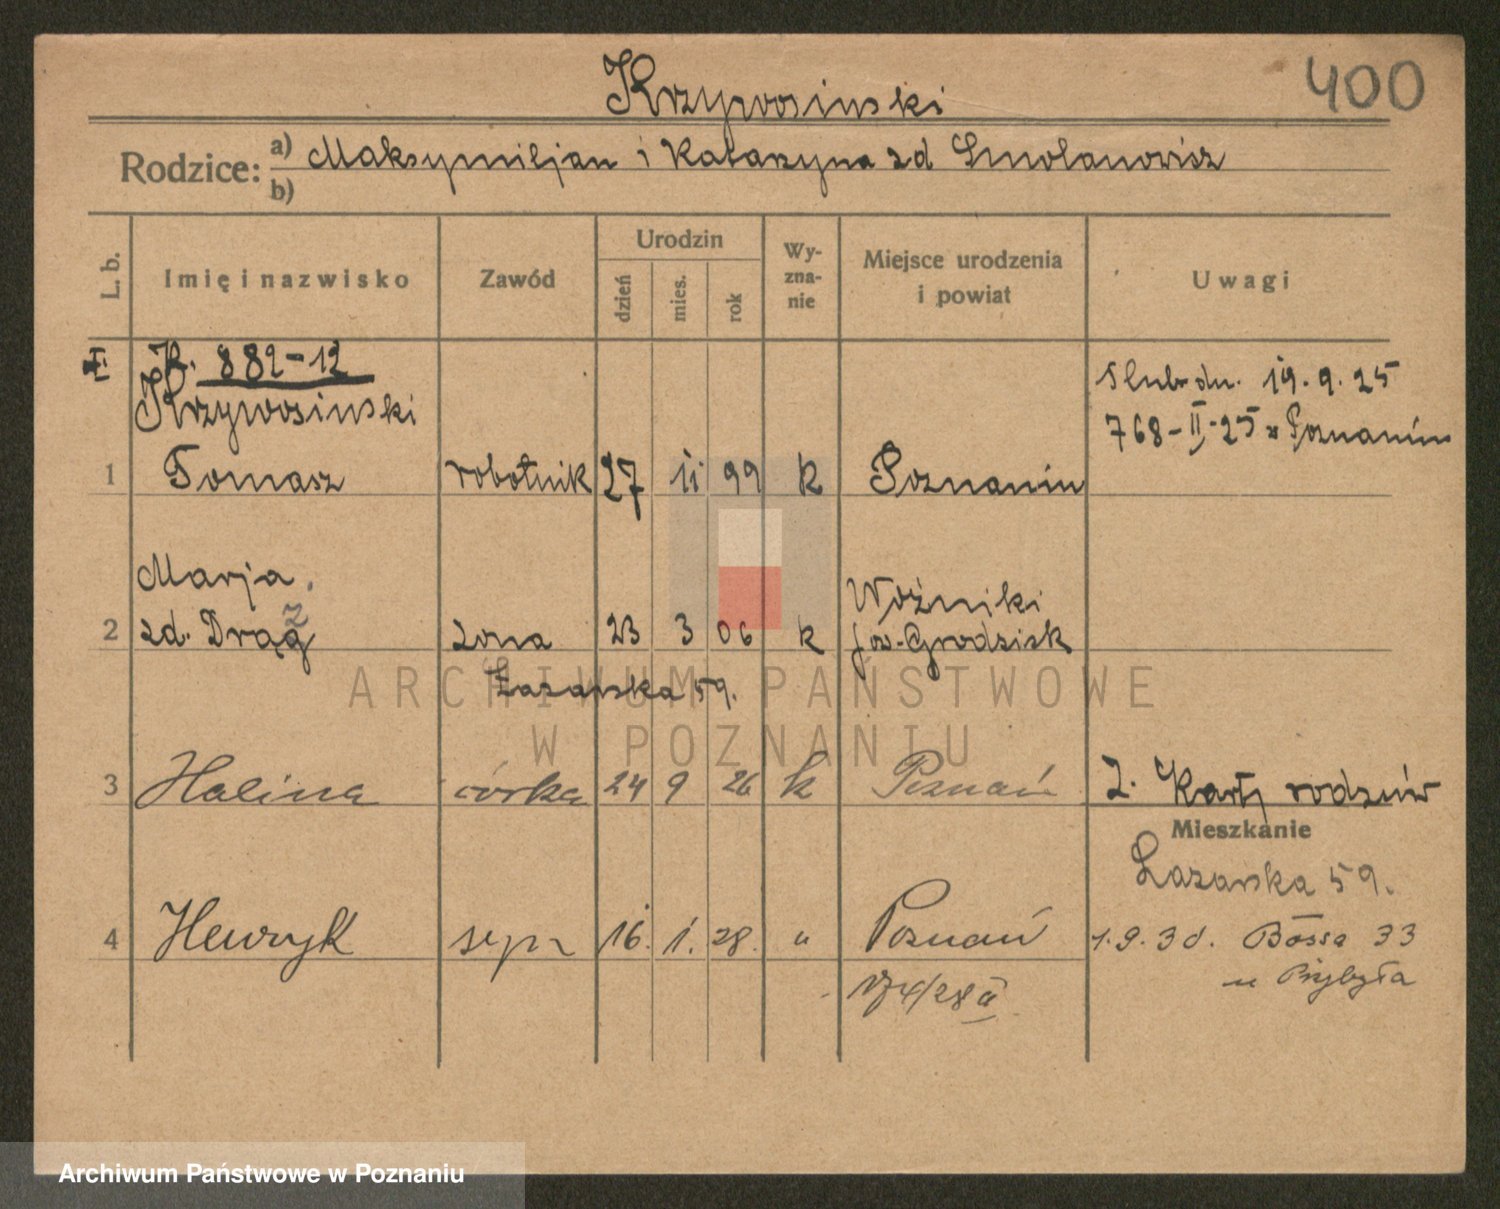 Krzywosinski
400
Rodzice: a) Maksymiljan i Katarzyna zd Smolanowicz
b)
L. b.
Imię i nazwisko
Zawód
Urodzin
dzień
mies.
rok
Wyznanie
Miejsce urodzenia
i powiat
Uwagi
I
K. 882-12
Krzywosinski
1 Tomasz robotnik 27 11 99 k Poznaniu
Slub dn. 19.9.25
768-II-25 w Poznaniu
Marja
2 zd. Drąg z żona 23 3 06 k
Woźniki
pow. Grodzisk
Łazarska 59.
3 Halina córka 24 9 26 k Poznań
Z. Karty rodziców
Mieszkanie
Łazarska 59.
4 Henryk syn 16. 1. 28. " Poznań
1.9.30. Bossa 33
u Przybyła
ARCHIWUM PAŃSTWOWE
W POZNANIU
Archiwum Państwowe w Poznaniu